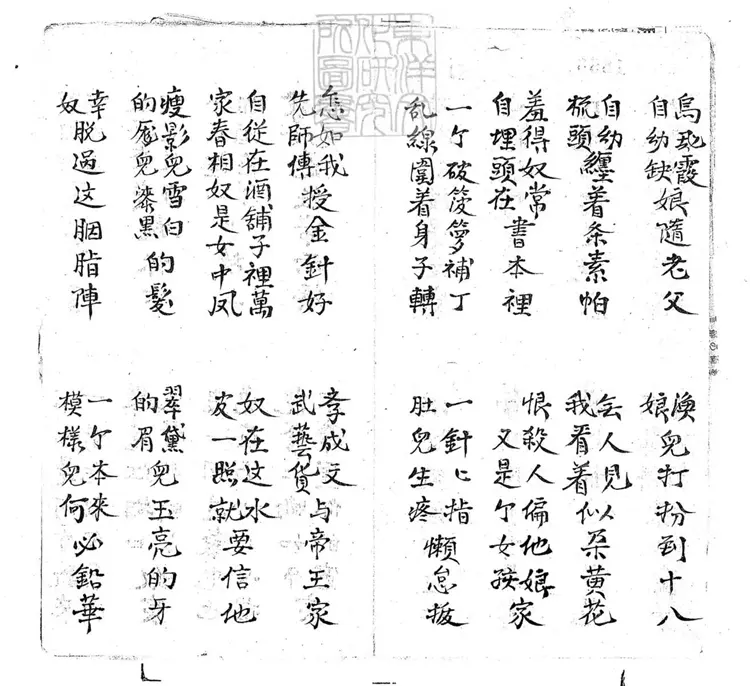 烏飛霞
自幼缺娘隨老父
渙兒
娘打扮到十八
自幼
梳頭纏着条素帕
人見
我看着似朵黄花
羞得奴常
自埋頭在書本裡
恨殺人偏他娘
又是个女孩家
一个破箩補丁
乱線圍着身子轉
一針ヒ指
肚兒生疼懶怠拔
怎如我
先師傅授金針好
成文
武藝貨与帝王家
自從在酒舖子裡萬
家春相奴是女中凤
奴在这水
皮一照就要信他
瘦影兒雪白
的兒漆黑的髪
翠黛
的眉兒玉亮的牙
幸
奴脱過这胭脂陣
一个本來
模樣兒何必鉛華
東洋文化研究所圖書